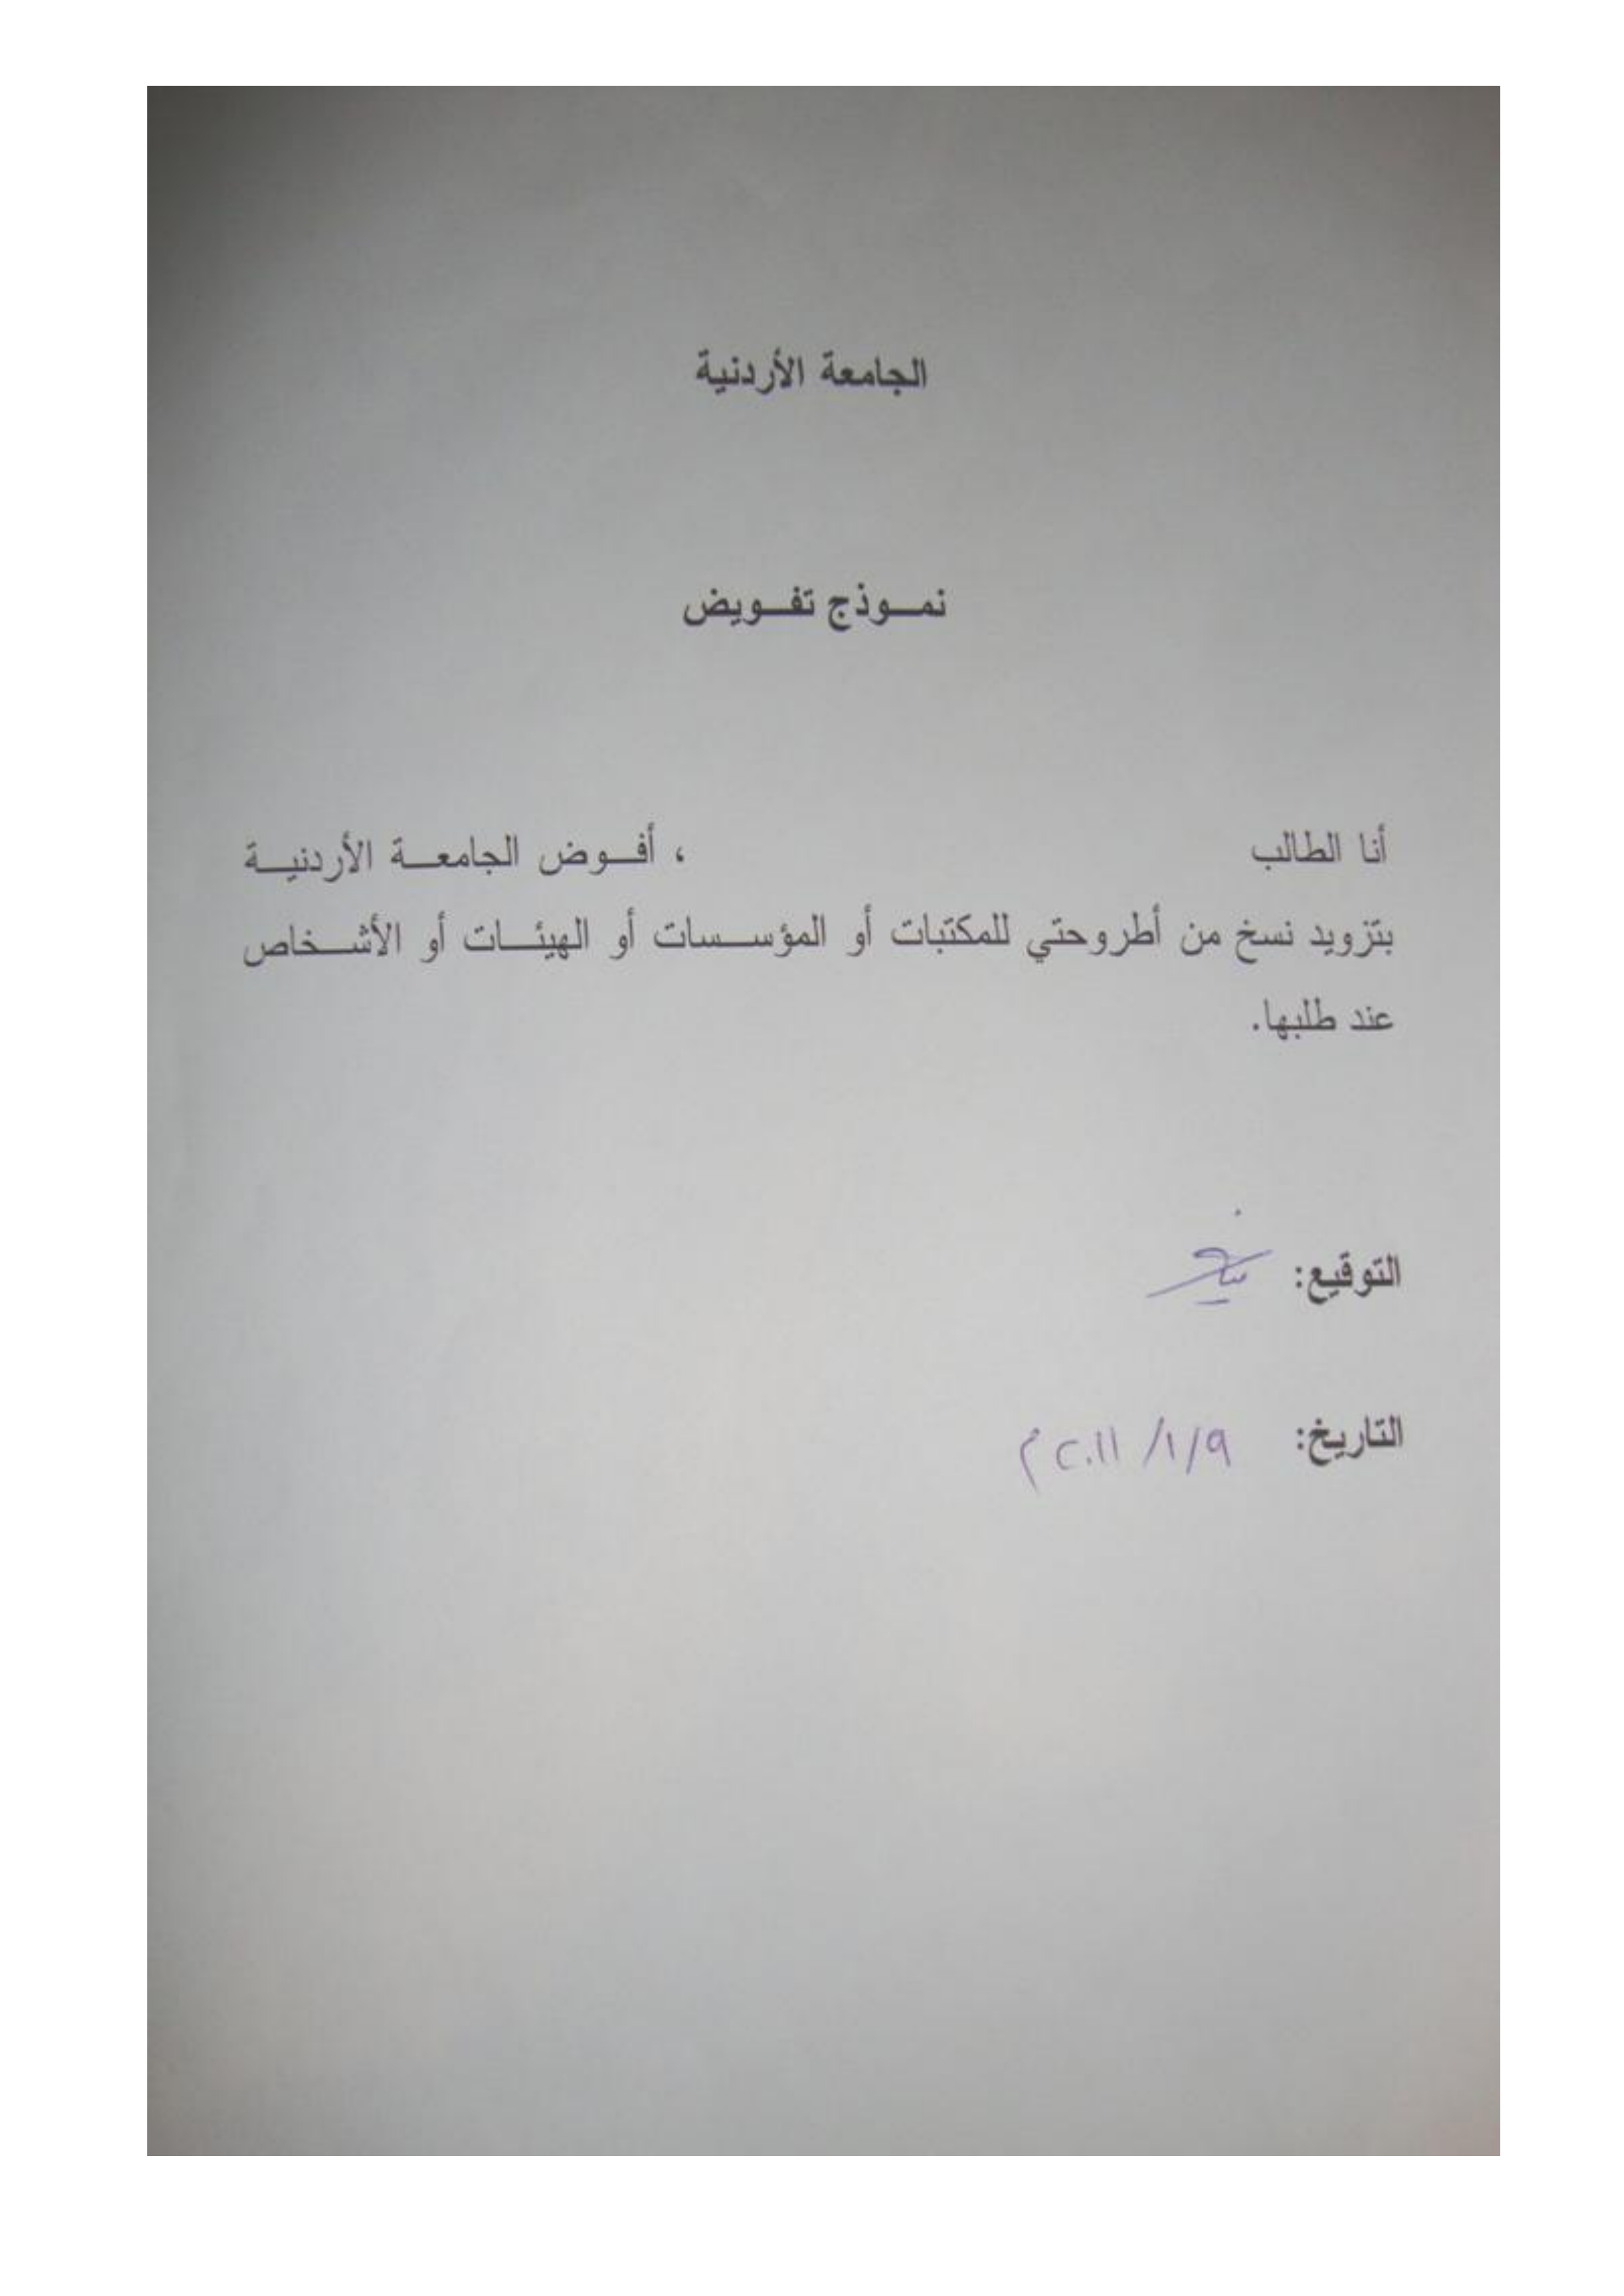 الجامعة الأردنية
نموذج تفويض
أنا الطالب ، أفوض الجامعة الأردنية
بتزويد نسخ من أطروحتي للمكتبات أو المؤسسات أو الهيئات أو الأشخاص
عند طلبها.
التوقيع:
التاريخ: ٩/١/٢٠١١م